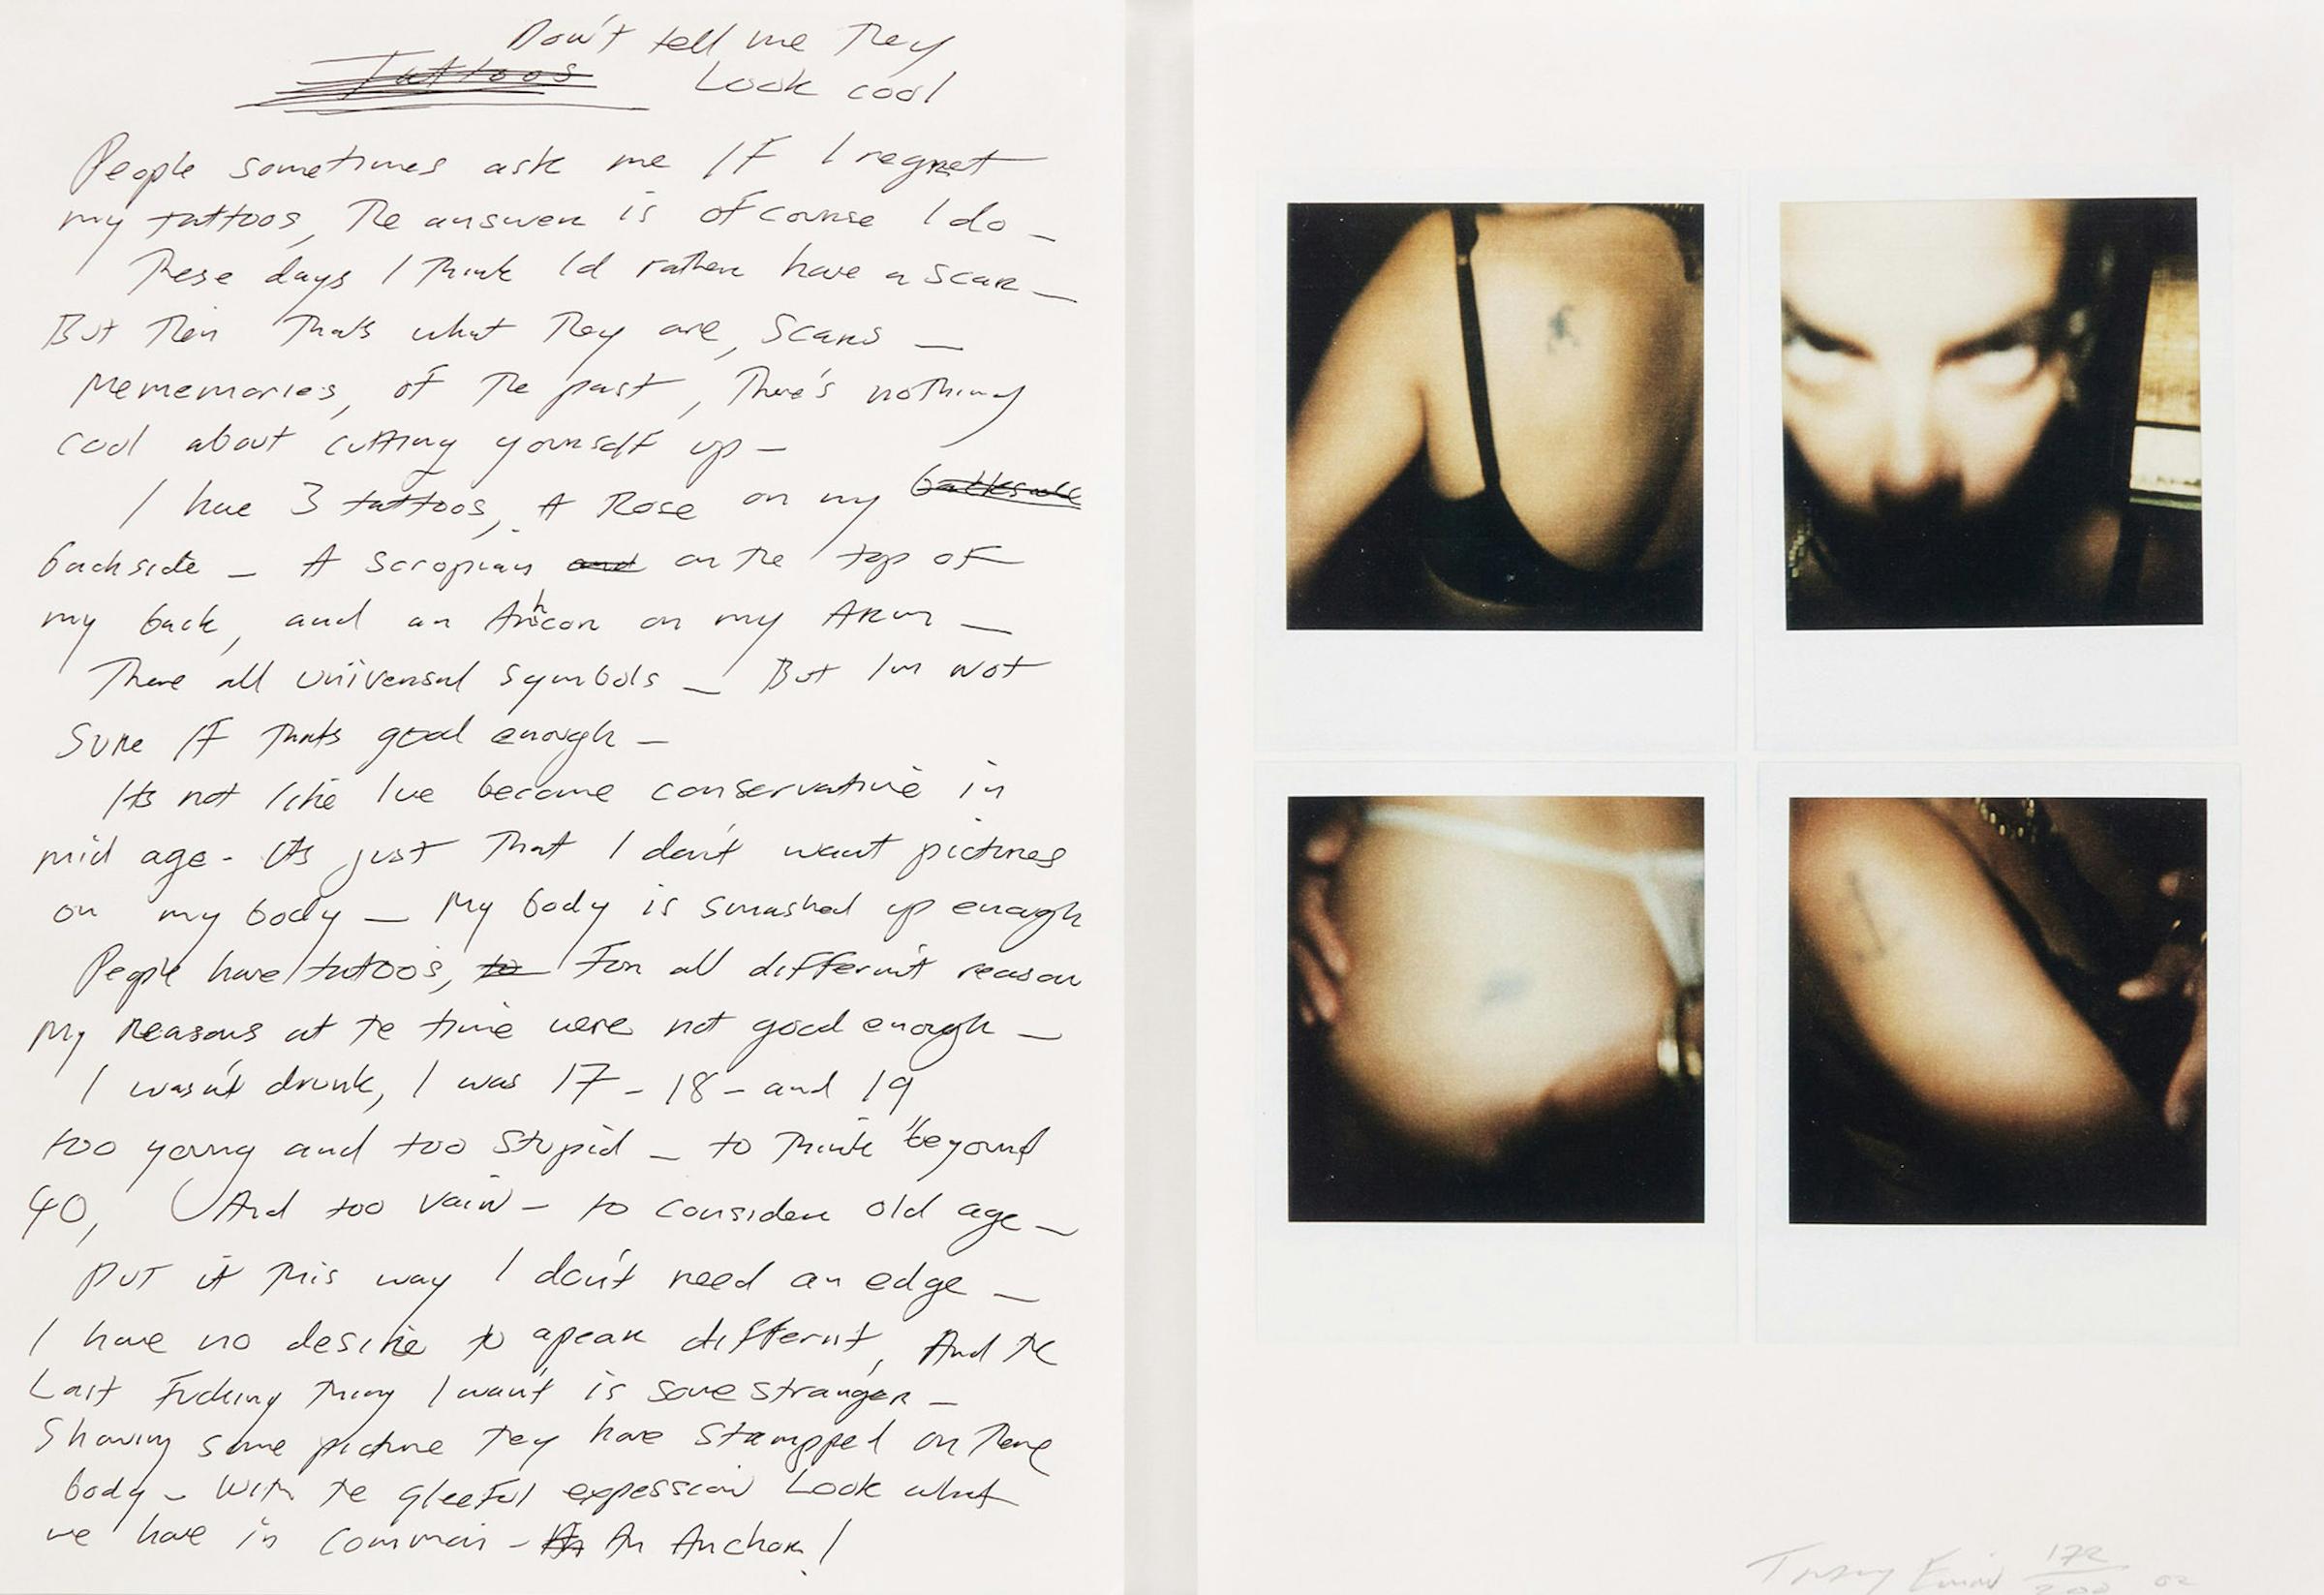 Don't tell me They
Tattoos Look cool
People sometimes ask me IF I regret
my tattoos, The answer is of course I do _
These days I Think Id rather have a scar _
But Then That's what They are, Scars _
Mememories, of The past, There's nothing
cool about cutting yourself up _
I have 3 tattoos, A Rose on my backside
backside _ A Scropian and on The top of
my back, and an Anhcor on my ARM _
There all Universal symbols _ But Im Not
Sure IF Thats good enough _
Its not like Ive become conservative in
mid age - Its just That I don't want pictures
on my body _ My body is smashed up enough
People have tattoos, to For all differint reason
My Reasons at te time were not good enough _
I wasn't drunk, I was 17 - 18 - and 19
too young and too Stupid _ to Think beyond
40, And too vain - to consider old age _
Put it This way I don't need an edge _
I have no desire to apear differnt, And Te
Last Fucking Thing I want is some stranger _
Showing some picture Tey have Stampped on There
body - With Te gleeful expession Look what
we have in common - An An Anchor!
Tracey Emin 172/200 02